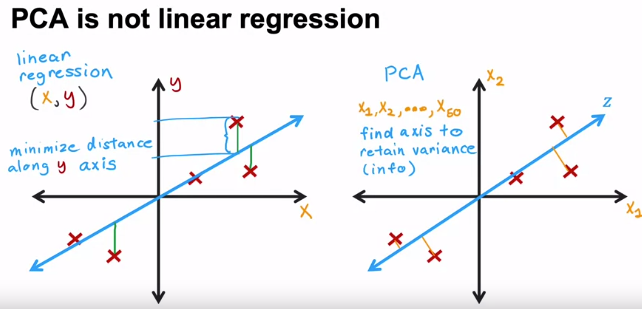 PCA is not linear regression
linear
regression
(x, y)
minimize distance
along y axis
y
x
PCA
x₁, x₂, ..., x₅₀
find axis to
retain variance
(info)
x₂
z
x₁